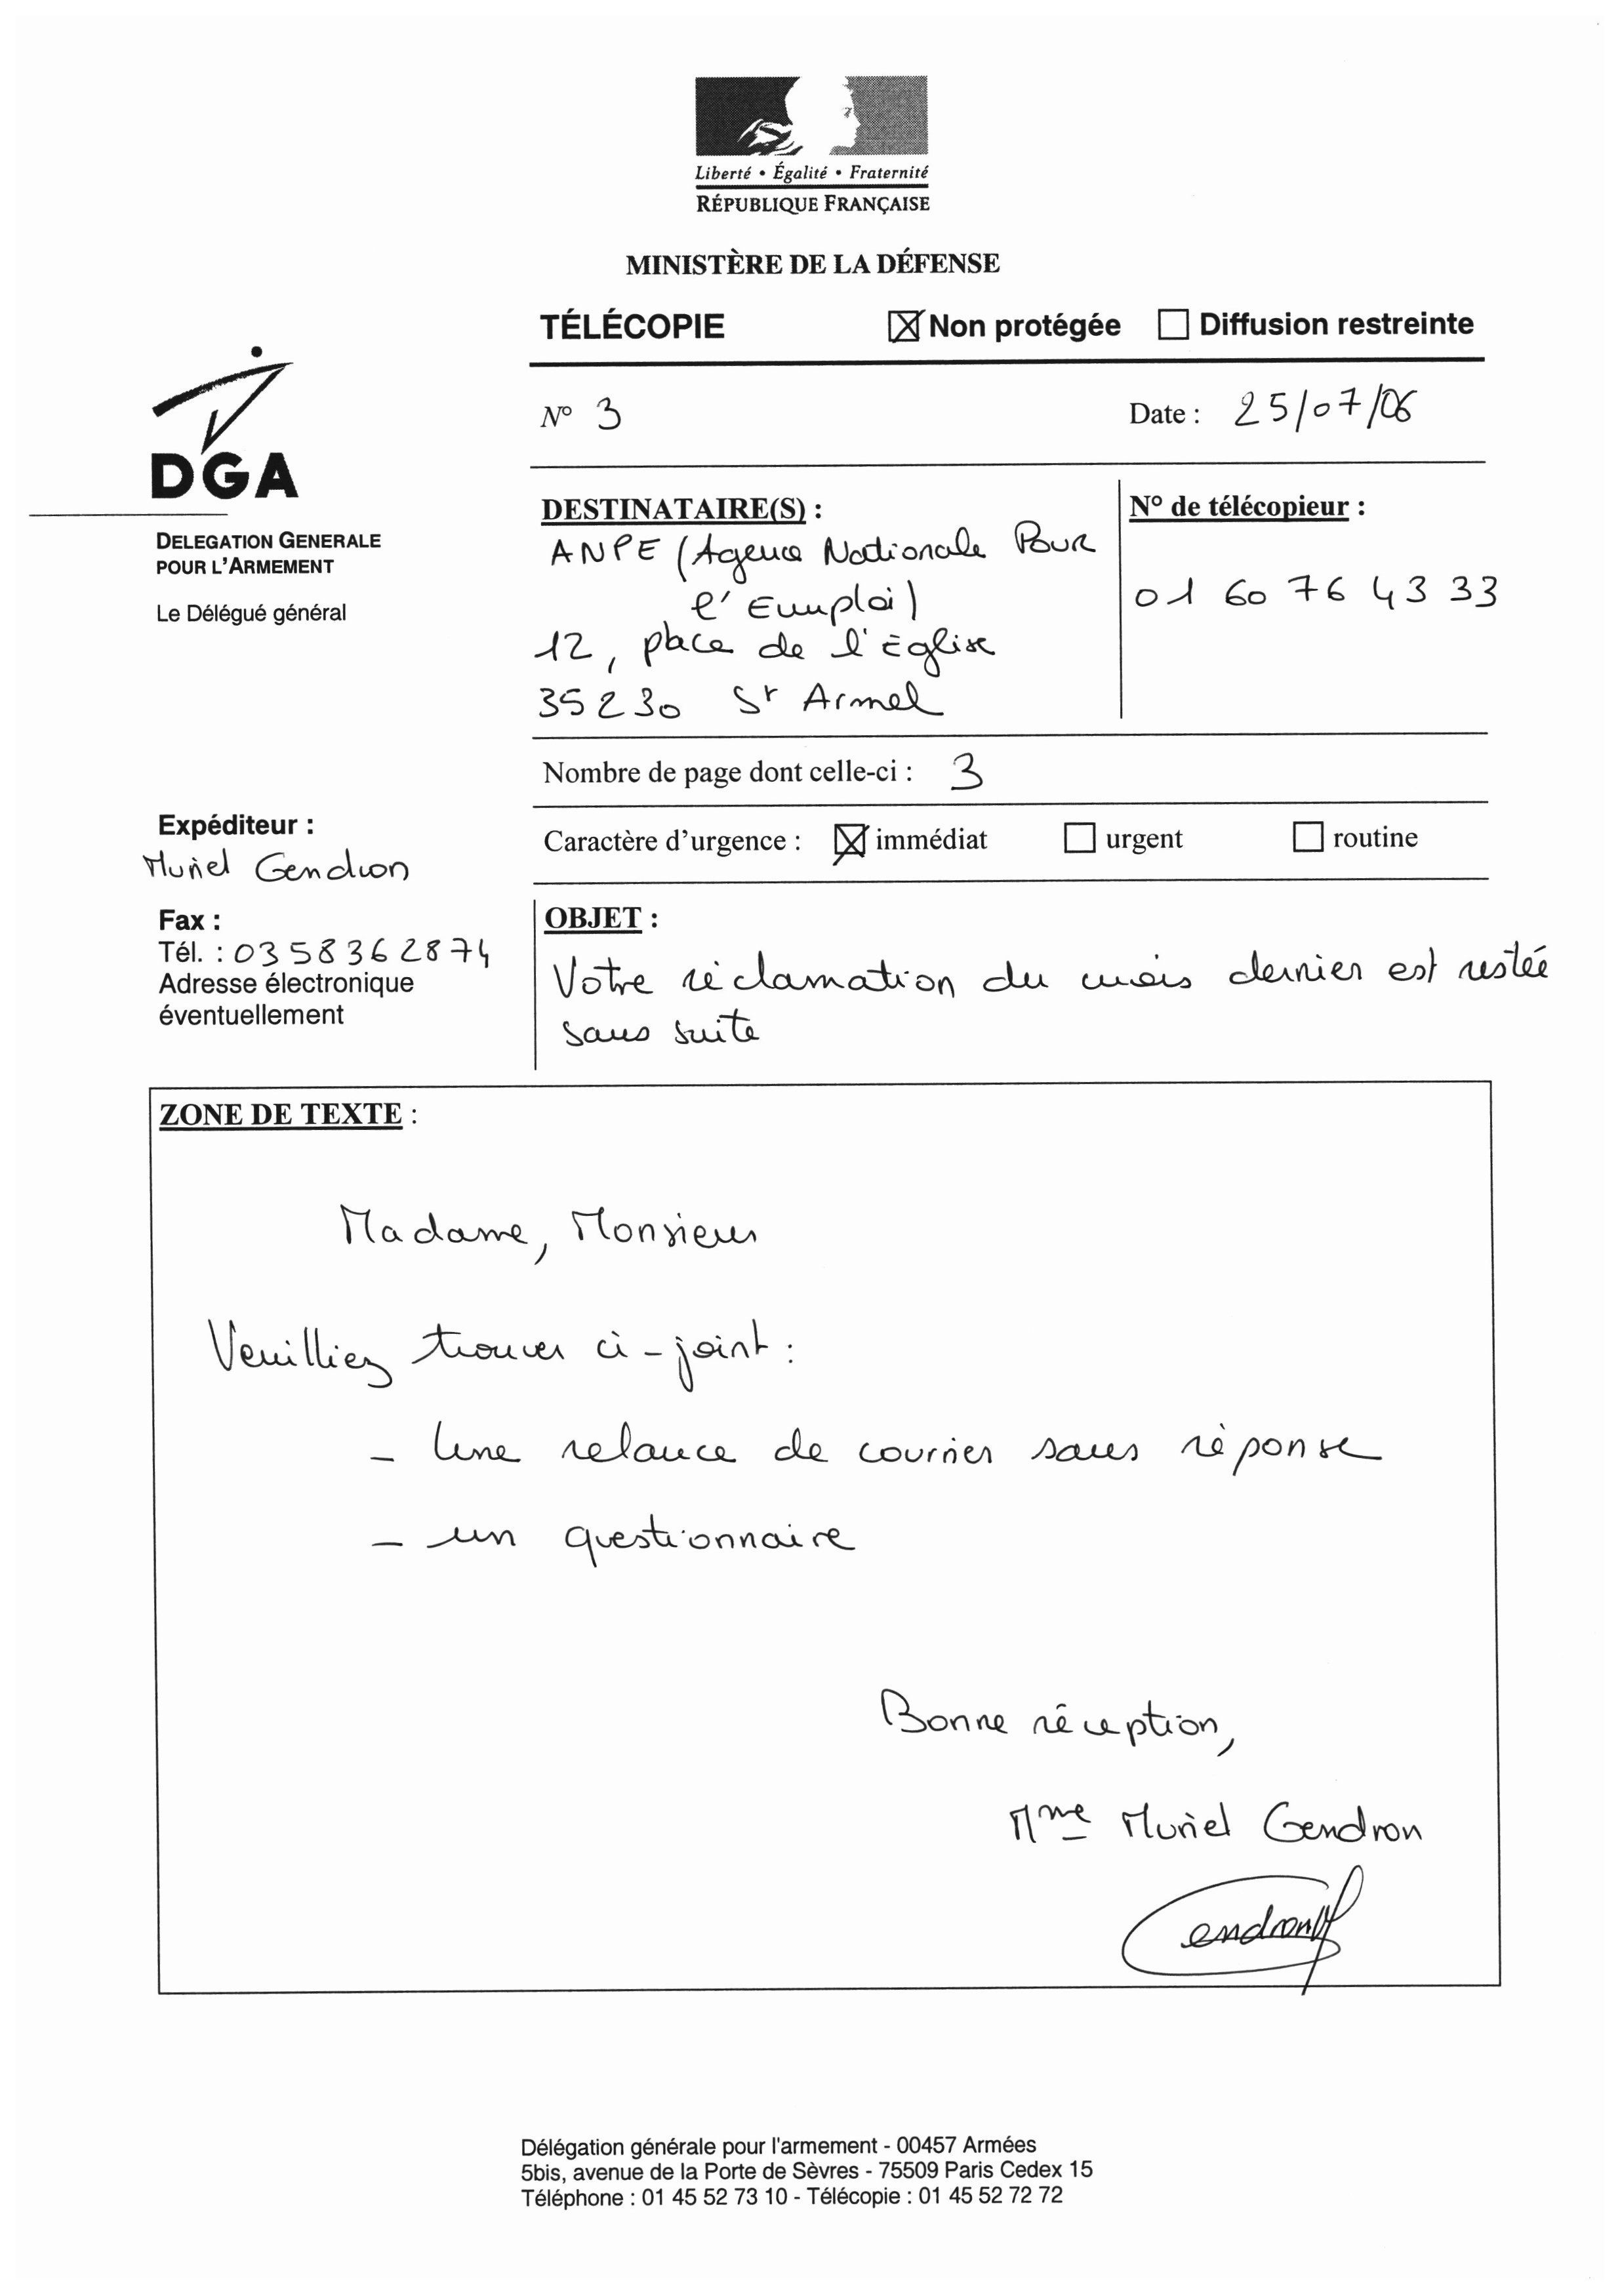 Liberté • Égalité • Fraternité
RÉPUBLIQUE FRANÇAISE
MINISTÈRE DE LA DÉFENSE
TÉLÉCOPIE ☒ Non protégée ☐ Diffusion restreinte
N° 3 Date : 25/07/06
DGA
DELEGATION GENERALE
POUR L'ARMEMENT
Le Délégué général
DESTINATAIRE(S) :
ANPE (Agence Nationale Pour
l'Emploi)
12, place de l'Eglise
35230 St Armel
N° de télécopieur :
01 60 76 43 33
Nombre de page dont celle-ci : 3
Caractère d'urgence : ☒ immédiat ☐ urgent ☐ routine
Expéditeur :
Muriel Gendron
Fax :
Tél. : 0358362874
Adresse électronique
éventuellement
OBJET :
Votre réclamation du mois dernier est restée
sans suite
ZONE DE TEXTE :
Madame, Monsieur
Veuilliez trouver ci-joint :
- Une relance de courrier sans réponse
- un questionnaire
Bonne réception,
Mme Muriel Gendron
endron
Délégation générale pour l'armement - 00457 Armées
5bis, avenue de la Porte de Sèvres - 75509 Paris Cedex 15
Téléphone : 01 45 52 73 10 - Télécopie : 01 45 52 72 72